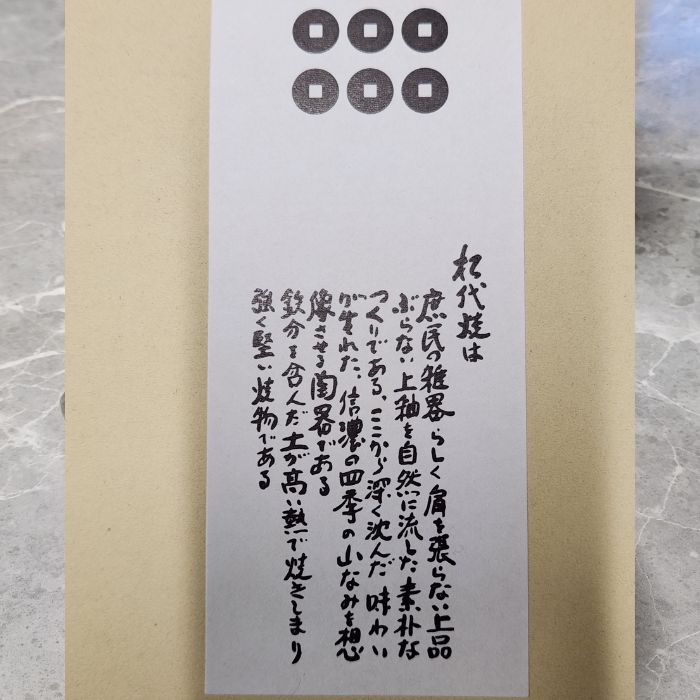 松代焼は
庶民の雑器らしく肩を張らない上品
ぶらない上釉を自然に流した素朴な
つくりである、ここから深く沈んだ味わい
が生れた、信濃の四季の山なみを想
像させる陶器である
鉄分を含んだ土が高い熱で焼きしまり
強く堅い焼物である